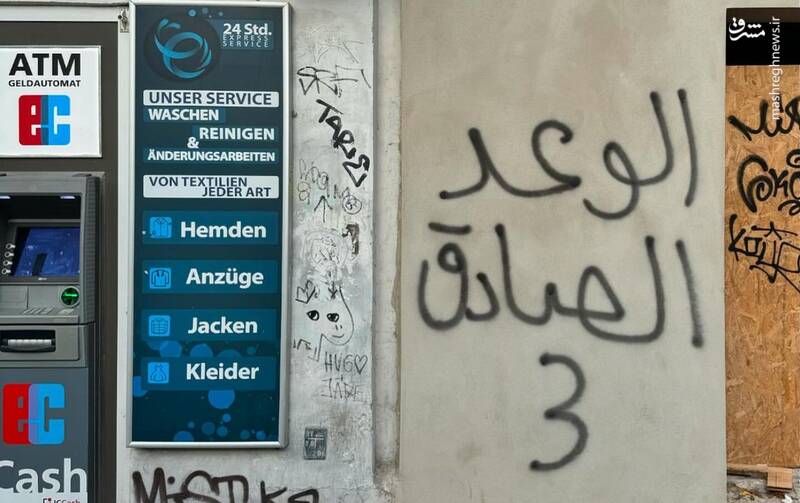 ATM
GELDAUTOMAT
ec
ec
Cash
24 Std.
EXPRESS
SERVICE
UNSER SERVICE
WASCHEN
REINIGEN
&
ÄNDERUNGSARBEITEN
VON TEXTILIEN
JEDER ART
Hemden
Anzüge
Jacken
Kleider
HUGO
الوعد
الصادق
3
مشرق
mashreghnews.ir